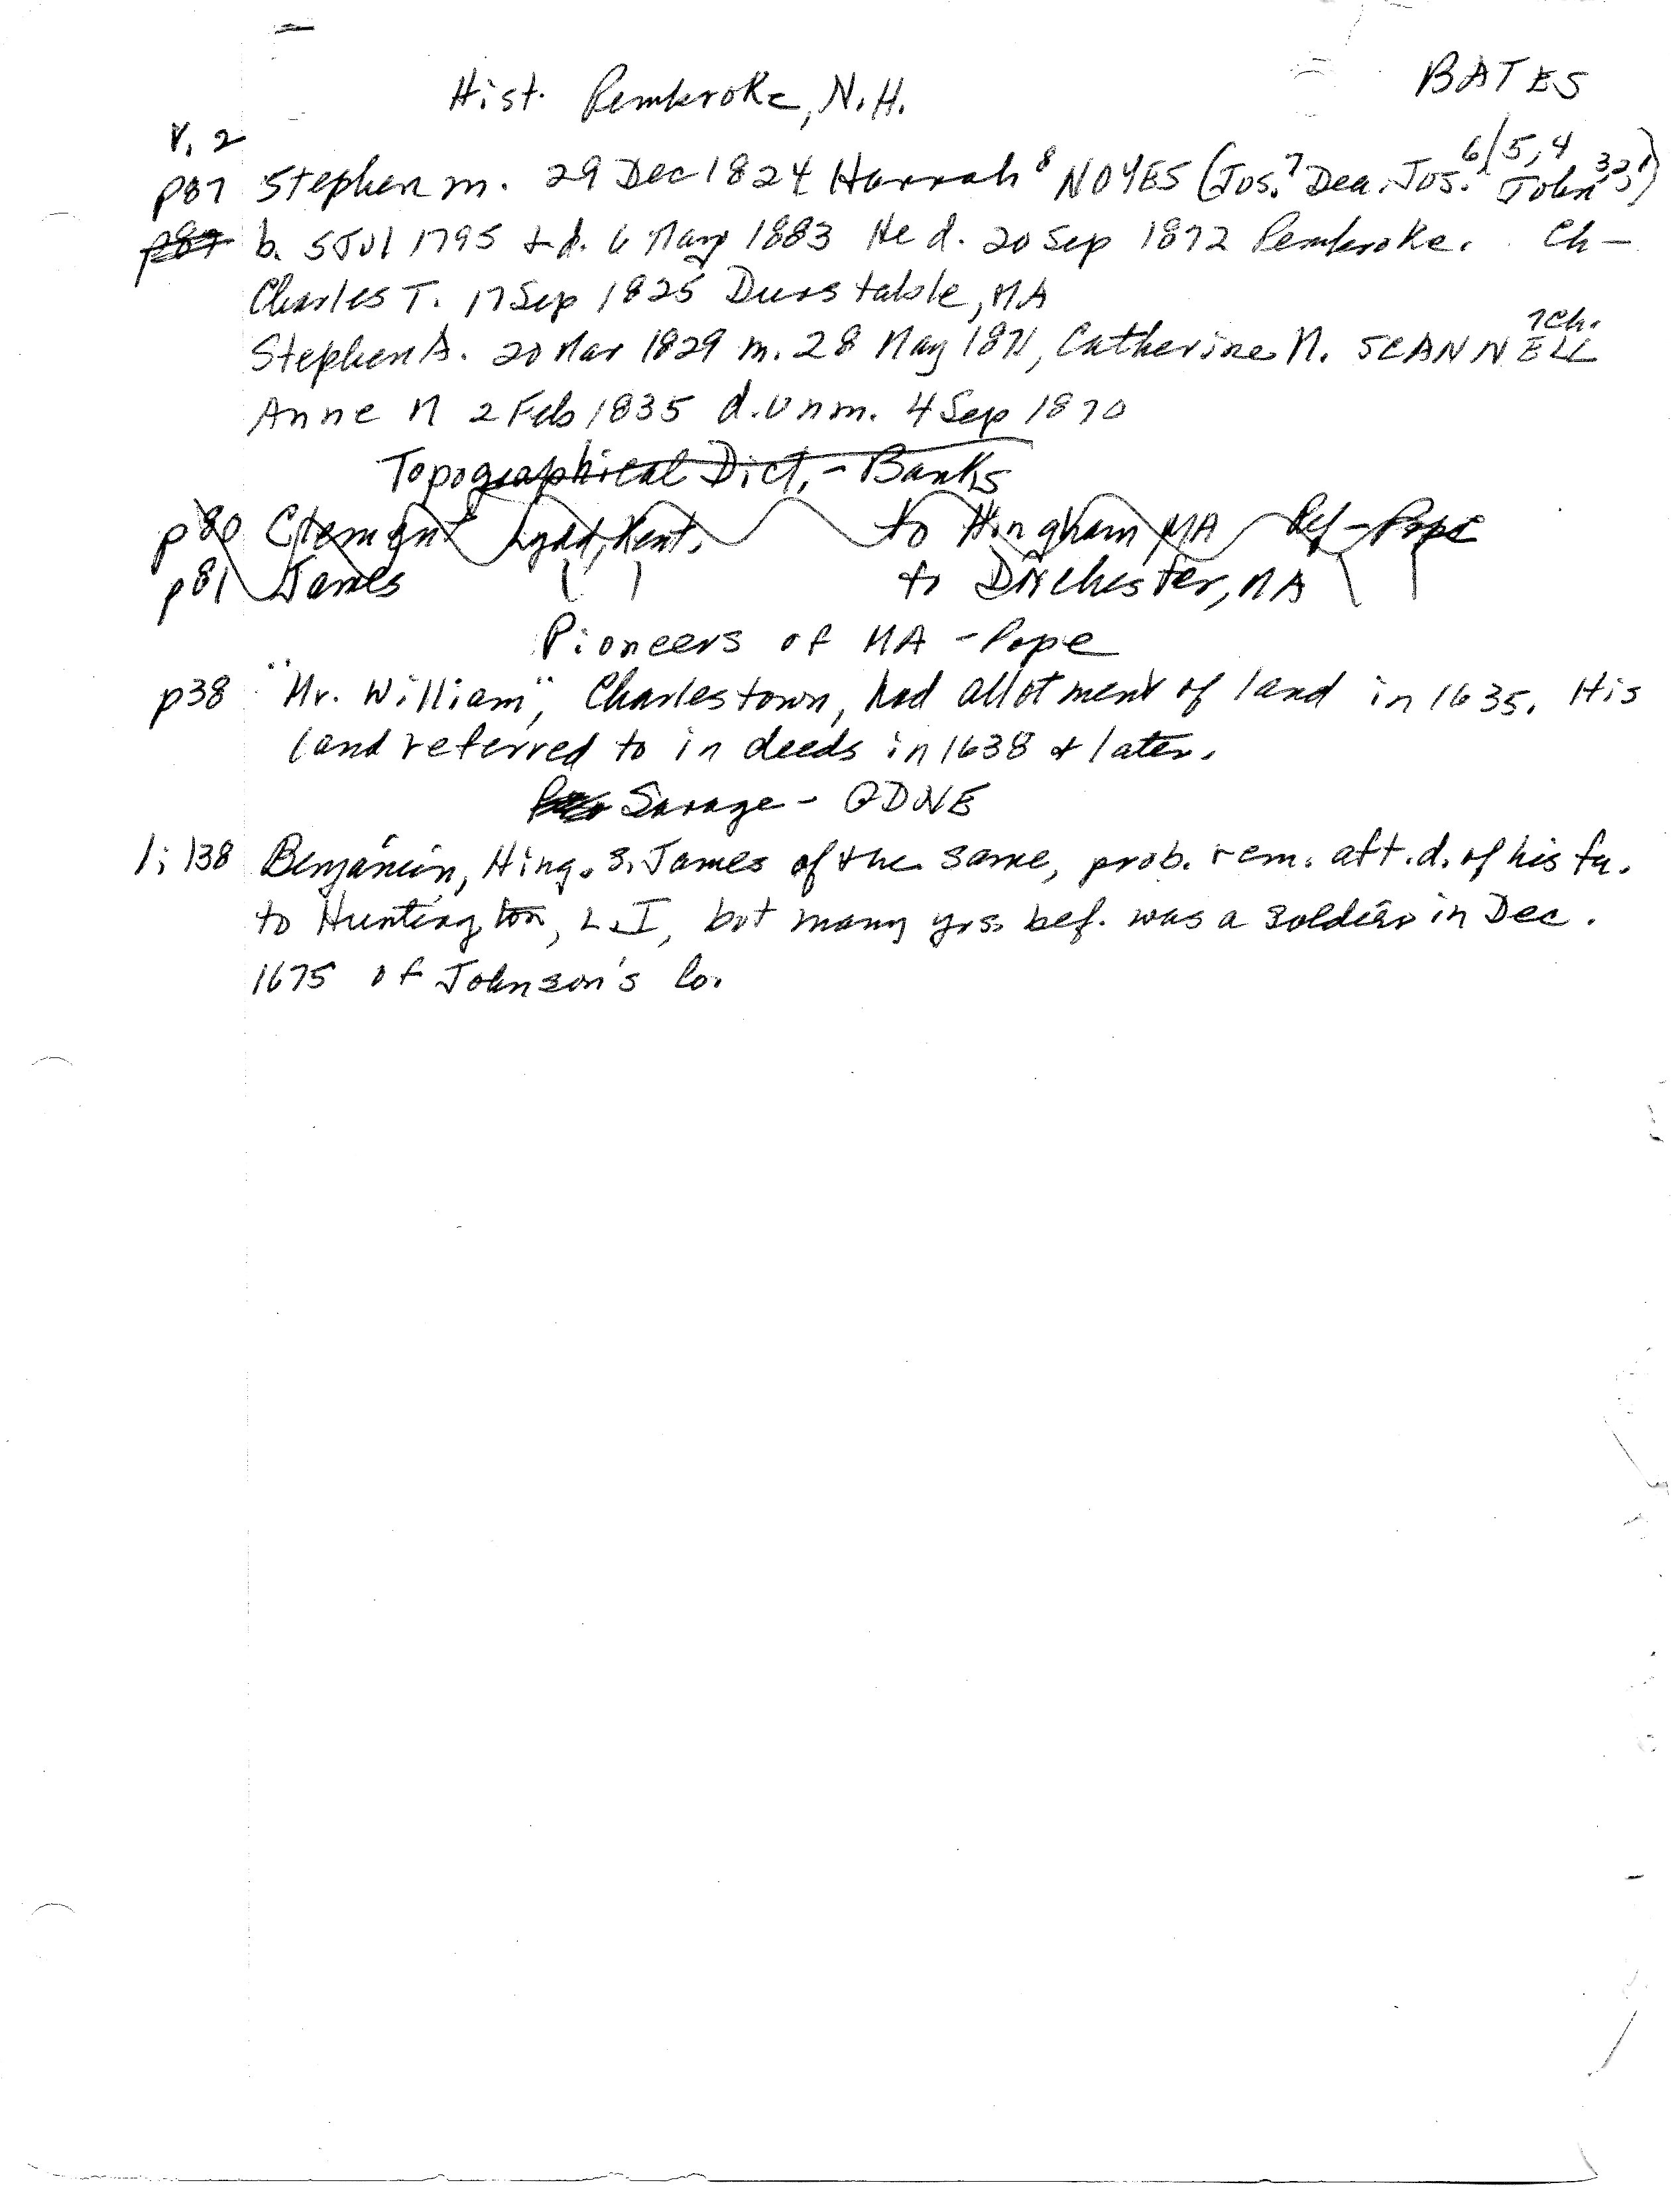 BATES
Hist. Pembroke, N.H.
V. 2
p87 Stephen m. 29 Dec 1824 Hannah⁸ NOYES (Jos.⁷ Dea. Jos.⁶/⁵,⁴ John³,²,¹)
p87 b. 5 Jul 1795 + d. 6 May 1883 He d. 20 Sep 1872 Pembroke. Ch-
Charles T. 17 Sep 1825 Dunstable, MA
Stephen A. 20 Mar 1829 m. 28 May 1871, Catherine M. SCANNELL 7ch.
Anne M 2 Feb 1835 d. unm. 4 Sep 1870
Topographical Dict. - Banks
p80 Clement Lydd, Kent. to Hingham MA Ref - Pope
p81 James " " to Dorchester, MA " "
Pioneers of MA - Pope
p38 "Mr. William", Charlestown, had allotment of land in 1635. His
land referred to in deeds in 1638 + later.
Savage - GDNE
1:138 Benjamin, Hing. s. James of the same, prob. rem. aft. d. of his fa.
to Huntington, L.I, but many yrs. bef. was a soldier in Dec.
1675 of Johnson's Co.